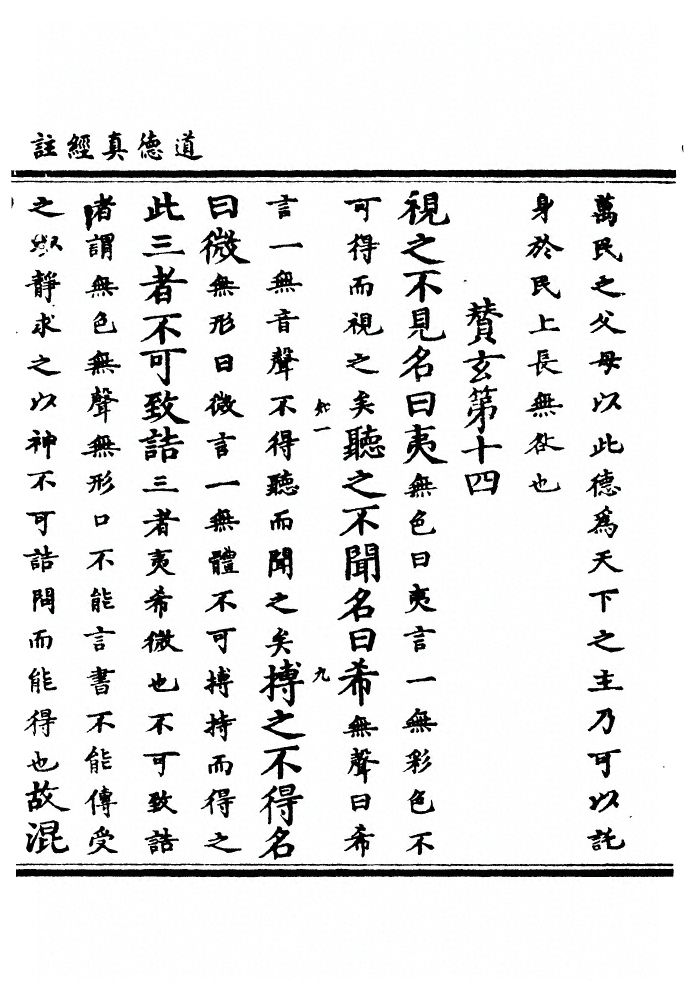 道德真經註
萬民之父母以此德爲天下之主乃可以託
身於民上長無咎也
賛玄第十四
視之不見名曰夷無色曰夷言一無彩色不
可得而視之矣聽之不聞名曰希無聲曰希
言一無音聲不得聽而聞之矣搏之不得名
曰微無形曰微言一無體不可搏持而得之
此三者不可致詰三者夷希微也不可致詰
者謂無色無聲無形口不能言書不能傳受
之以靜求之以神不可詰問而能得也故混
九